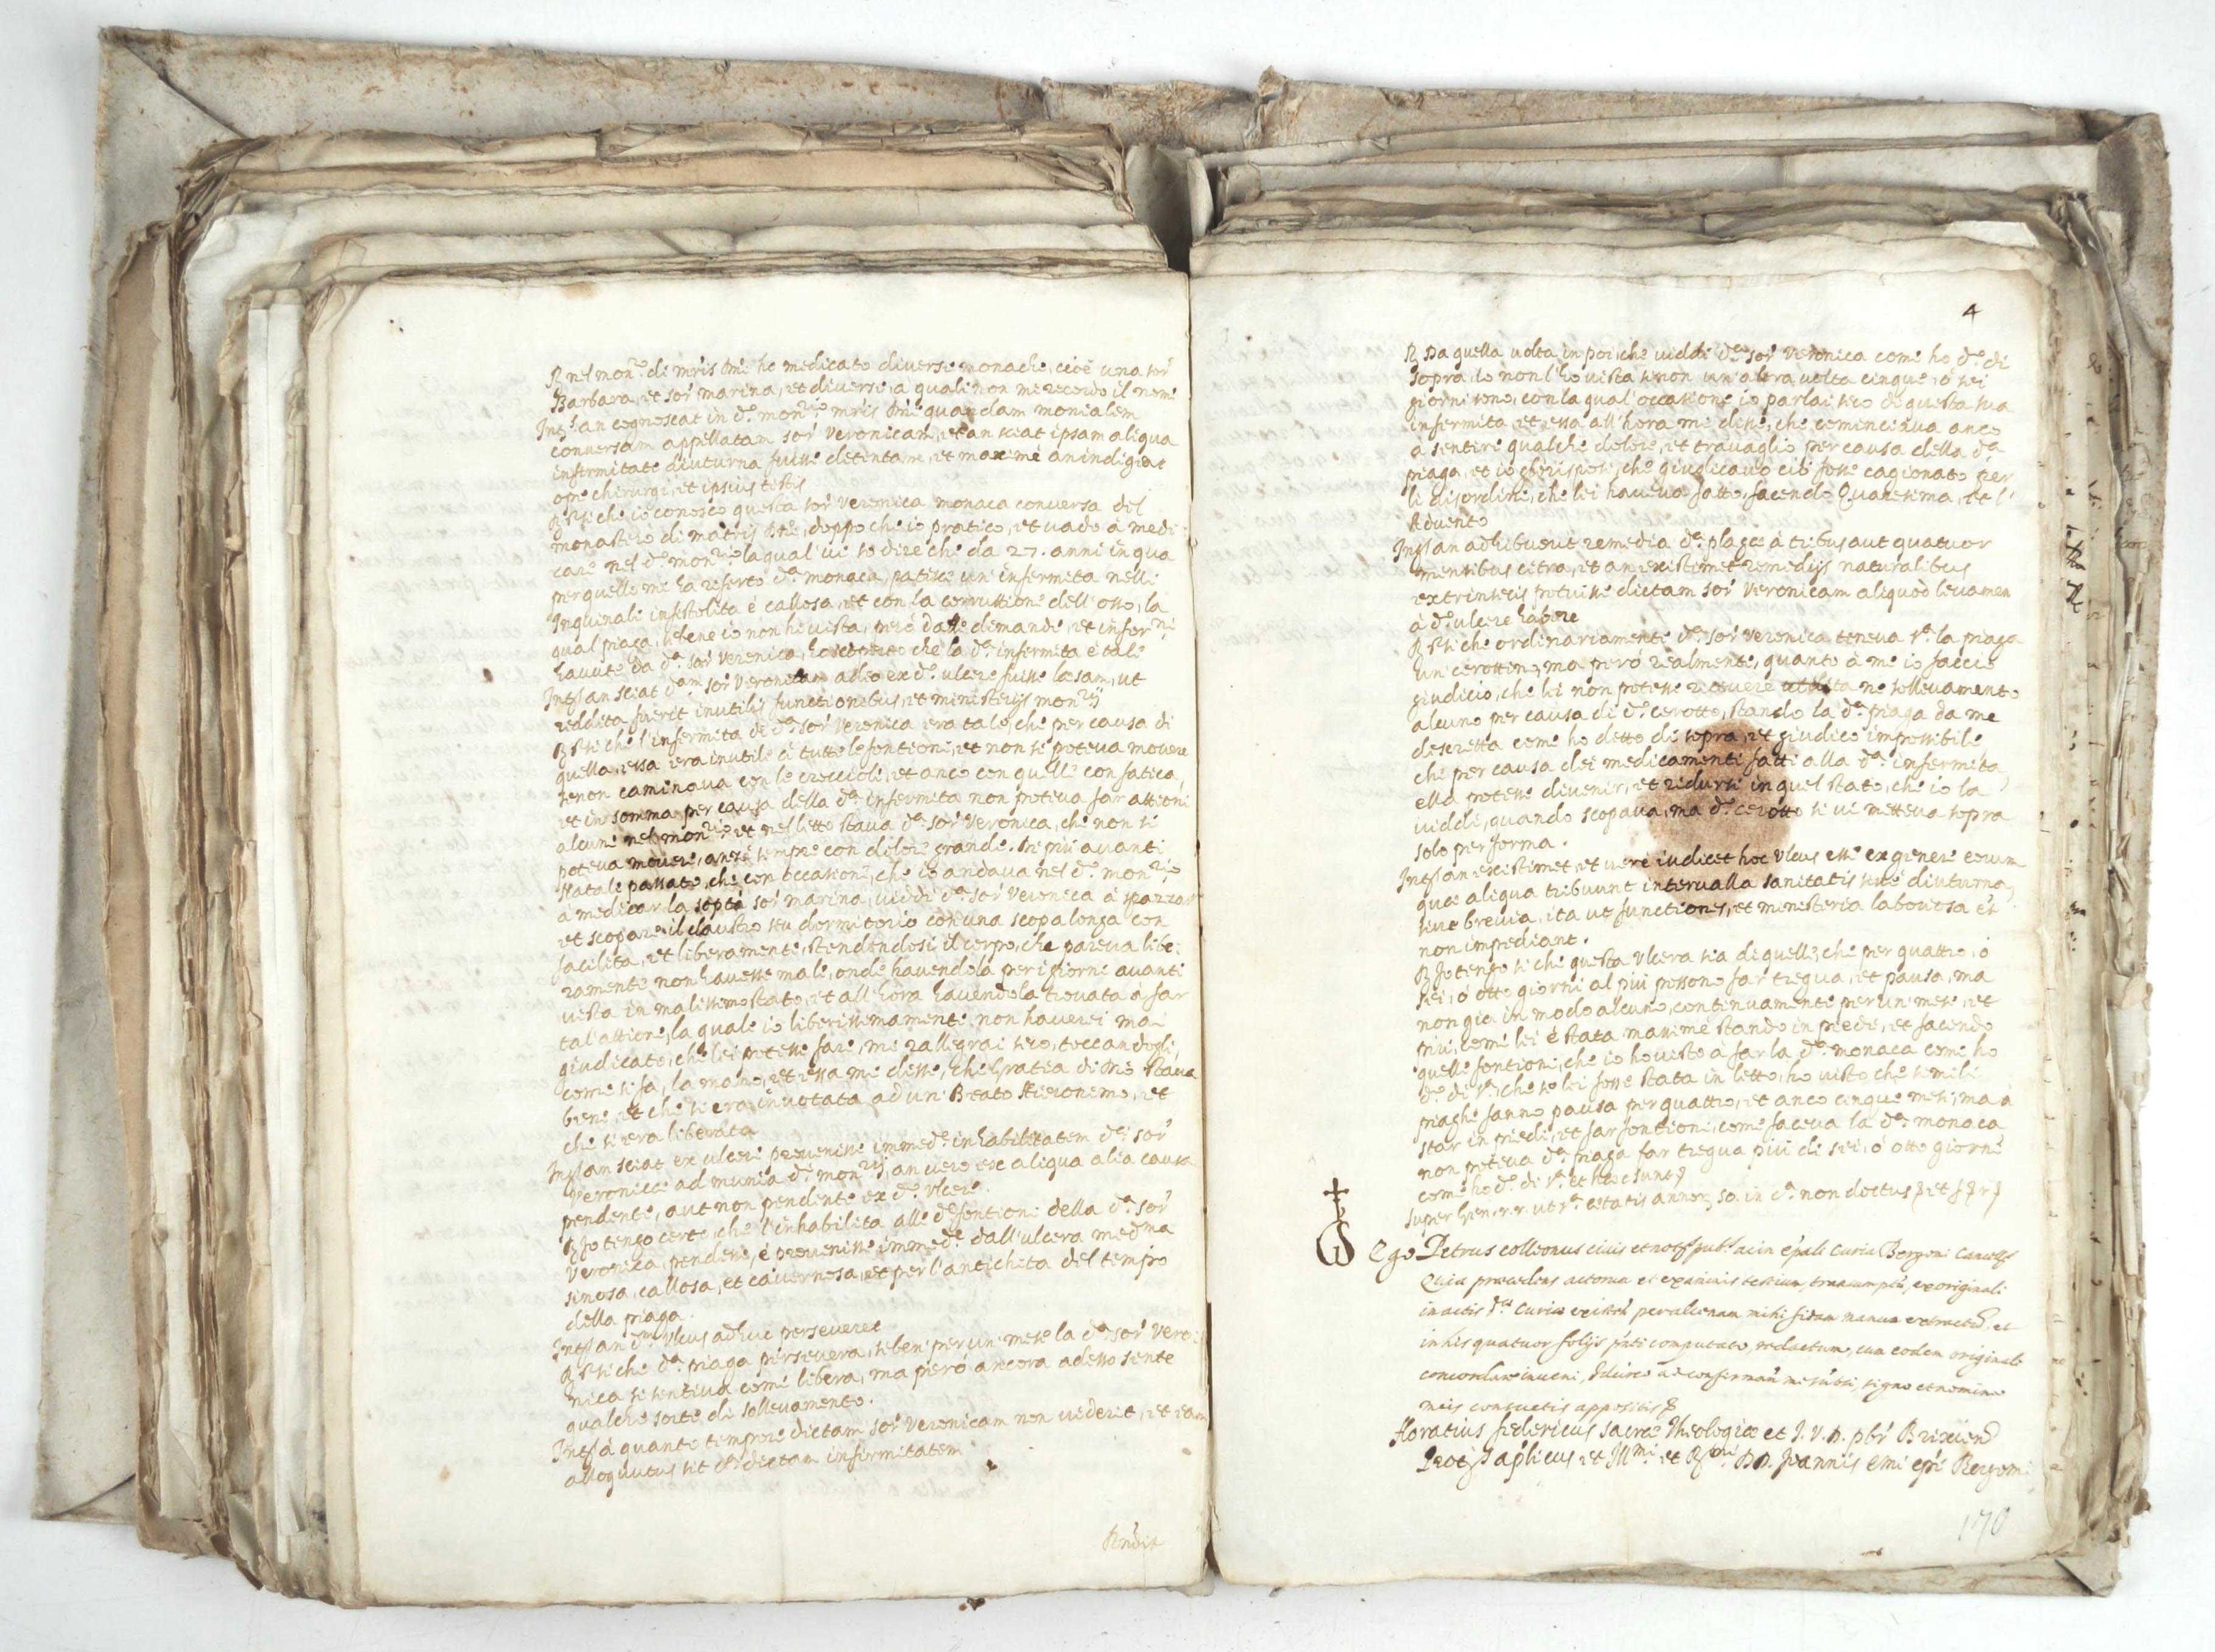 R nel mon.rio di mr̃is Dñi ho medicato diverse monache, cioè una sor
Barbara, et sor marina, et diverse, a quali non mi recordo il nome
Int.s an cognoscat in d.o mon.rio mr̃is Dñi quandam monialem
conversam appellatam sor Veronicam, et an sciat ipsam aliqua
infirmitate diuturna fuisse detentam, et maxime an indigeat
ope chirurgi, et ipsius testis
R che io conosco questa sor Veronica monaca conversa del
monastero di matris Dñi, doppo che io pratico, et vado à medi
care nel d.o mon.rio la qual vi so dire che da 27. anni in qua
per quello mi ha referto d.a monaca, patisce un'infermita nelle
Inguinali infistolita è callosa, et con la corruttione dell'osso, la
qual piaga, se bene io non hò vista, però dalle dimande, et infor.ni
havute da d.a sor Veronica, ho scoperto che la d.a infermita è tale
Int.s an sciat d.am sor Veronicam adeo ex d.o ulcere fuisse læsam, ut
reddita fuerit inutilis functionibus, et ministerijs mon.rij
R che l'infermita di d.a sor Veronica era tale, che per causa di
quella, essa era inutile à tutte le fontioni, et non si poteva movere
se non caminava con le crocciole, et anco con quelle con fatica,
et in somma per causa della d.a infermita non poteva far attioni
alcune nel mon.rio et nel letto stava d.a sor Veronica, che non si
poteva movere, anzi sempre con dolore grande. se più avanti
Natale passato, che con occasione, che io andava nel d.o mon.rio
à medicar la sop.ta sor marina, viddi d.a sor Veronica à spazzar
et scopare il claustro seu dormitorio con una scopa longa con
facilita, et liberamente, stendendosi il corpo, che pareva libe-
ramente non havesse male, onde havendola per i giorni avanti
vista in malissimo stato, et all'hora havendola trovata à far
tal attione, la quale io liberissimamente non haverei mai
giudicato, che lei potesse fare, mi rallegrai seco, toccandogli,
come si fa, la mano, et essa mi disse, che Gratia di Dio stava
bene, et che si era invotata ad un Beato Hieronimo, et
che si era liberata
Int.s an sciat ex ulcere provenisse immed.e inhabilitatem d.æ sor
Veronicæ ad munia d.i mon.rij, an vero ex aliqua alia causa
pendente, aut non pendente ex d.o Ulcere.
R Io tengo certo, che l'inhabilita alle d.e fontioni della d.a sor
Veronica, pendesse, è provenisse immed.e dall'ulcera med.ma
sinosa, callosa, et cavernosa, et per l'antichita del tempo
della piaga.
Int.s an d.m Ulcus adhuc perseveret
R che d.a piaga persevera, sebene per un mese la d.a sor Vero:
nica si sentiva come libera, ma però ancora adesso sente
qualche sorte di sollevamento.
Int.s à quanto tempore dictam sor Veronicam non viderit, et eam
alloquutus sit circa dictam infirmitatem
Rñdit
4
R Da quella volta in poi, che viddi d.a sor Veronica come ho d.o di
sopra, io non l'ho vista se non un'altra volta cinque, ò sei
giorni sono, con la qual'occasione io parlai seco di questa sua
infermita, et essa all'hora mi disse, che cominciava anco
a sentire qualche dolore, et travaglio per causa della d.a
piaga, et io gli risposi, che giudicavo ciò fosse cagionato per
li disordini, che lei haveva fatto, facendo Quaresima, et l'
Advento
Int.s an adhibuerit remedia d.æ plagæ à tribus aut quatuor
mensibus citra, et an existimet remedijs naturalibus
extrinsecis potuisse dictam sor Veronicam aliquod levamen
à d.o ulcere habere
R che ordinariamente d.a sor Veronica teneva s.a la piaga
un cerottino, ma però realmente, quanto à me io faccio
giudicio, che lei non potesse ricevere utilita ne sollevamento
alcuno per causa di d.o cerotto, stando la d.a piaga da me
descritta come ho detto di sopra, et giudico impossibile
che per causa dei medicamenti fatti alla d.a infermita
ella potesse divenir, et ridursi in quel stato, che io la
viddi, quando scopava, ma d.o cerotto si vi metteva sopra
solo per forma.
Int.s an existimet, et vere iudicet hoc Ulcus esse ex genere eorum
quæ aliqua tribuunt intervalla sanitatis sive diuturna,
sive brevia, ita ut functiones, et ministeria laboriosa ei
non impediant.
R Io tengo si che questa Ulcera sia di quelle, che per quattro, ò
sei, ò otto giorni al più possono far tregua, et pausa, ma
non gia in modo alcuno, continuamente per un mese, et
più, come lei è stata, massime stando in piedi, et facendo
quelle fontioni, che io ho visto à far la d.a monaca come ho
d.o di s.a che se lei fosse stata in letto, ho visto che simili
piaghe fanno pausa per quattro, et anco cinque mesi, ma a
star in piedi, et far fontioni, come faceva la d.a monaca
non poteva d.a piaga far tregua più di sei, ò otto giorni
come ho d.o di s.a et hæc sunt
super gen. r.r. ut s.a ætatis annor. 50. in c.a non doctus
Ego Petrus colleonus civis et not.s pub.s ac in ep̃ali Curia Bergomi Cancell.s
Quia præcedens actorum et examinis testium transumptũ, ex originali
in actis d.æ Curiæ existeñ per alienam mihi fidam manum extractũ, et
in his quatuor folijs p̃nti computato, redactum, cum eodem originali
concordare inveni, Idcirco
meis consuetis appositis
Horatius federicus sacræ Theologiæ et I. V. D. pbr̃ Brixieñ
Prot.s Ap̃licus, et Ill.mi et R.mi D.D. Joannis Emi ep̃i Bergomi
170